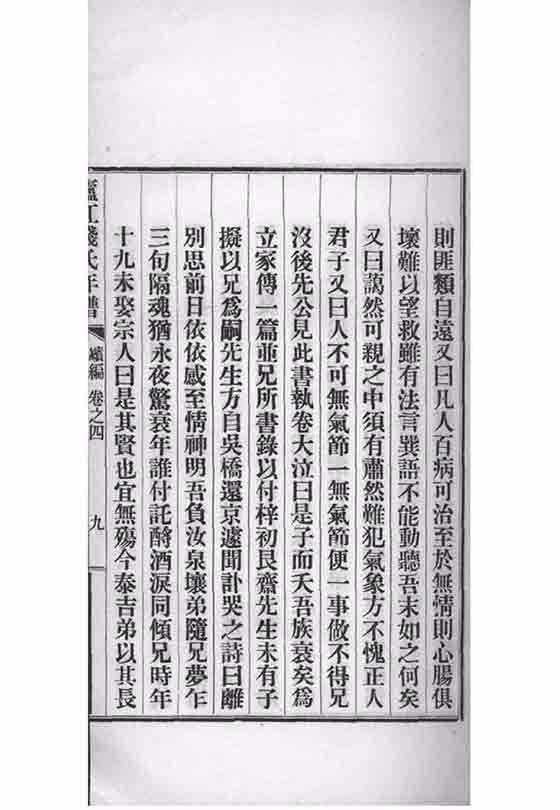 則匪類自遠又曰凡人百病可治至於無情則心腸俱
壞難以望救雖有法言巽語不能動聽吾末如之何矣
又曰藹然可親之中須有肅然難犯氣象方不愧正人
君子又曰人不可無氣節一無氣節便一事做不得兄
沒後先公見此書執卷大泣曰是子而夭吾族衰矣爲
立家傳一篇並兄所書錄以付梓初艮齋先生未有子
擬以兄爲嗣先生方自吳橋還京遽聞訃哭之詩曰離
別思前日依依感至情神明吾負汝泉壤弟隨兄夢乍
三旬隔魂猶永夜驚衰年誰付託酹酒淚同傾兄時年
十九未娶宗人曰是其賢也宜無殤今泰吉弟以其長
廬江錢氏年譜 續編 卷之四 九